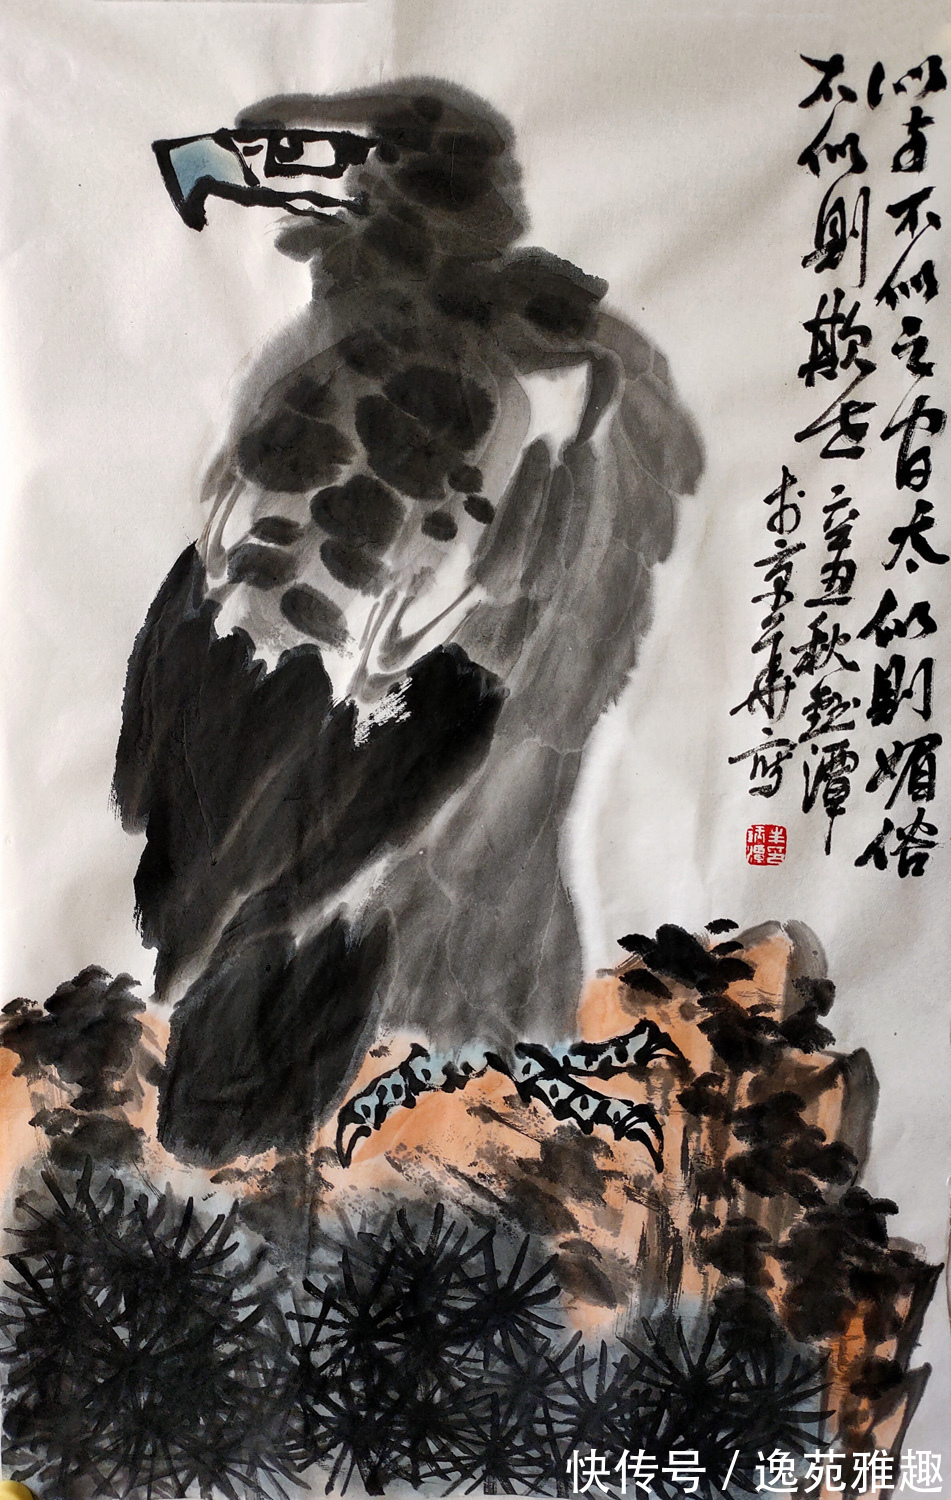 似与不似之間太似則媚俗
不似則欺世 辛丑秋潭
於京華写
快传号 / 逸苑雅趣